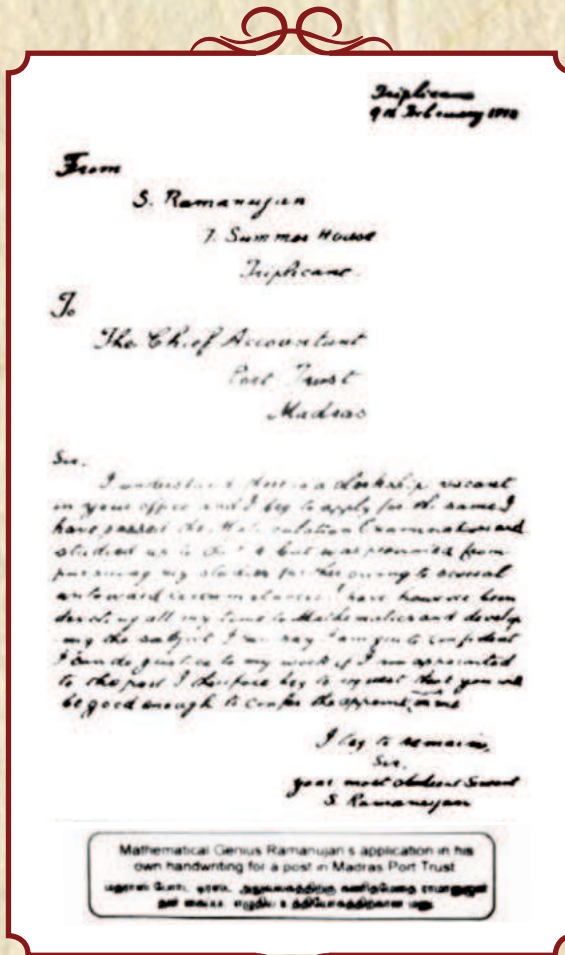 Triplicane
9th February 1912
From
S. Ramanujan
7. Summer House
Triplicane.
To
The Chief Accountant
Port Trust
Madras
Sir,
I understand there is a clerkship vacant
in your office and I beg to apply for the same I
have passed the Matriculation Examination and
studied up to the F.A but was prevented from
pursuing my studies further owing to several
untoward circumstances. I have however been
devoting all my time to Mathematics and develop
ing the subject I can say I am quite confident
I can do justice to my work if I am appointed
to the post I therefore beg to request that you will
be good enough to confer the appointmt on me
I beg to remain,
Sir,
your most obedient Servant
S. Ramanujan
Mathematical Genius Ramanujan's application in his
own handwriting for a post in Madras Port Trust